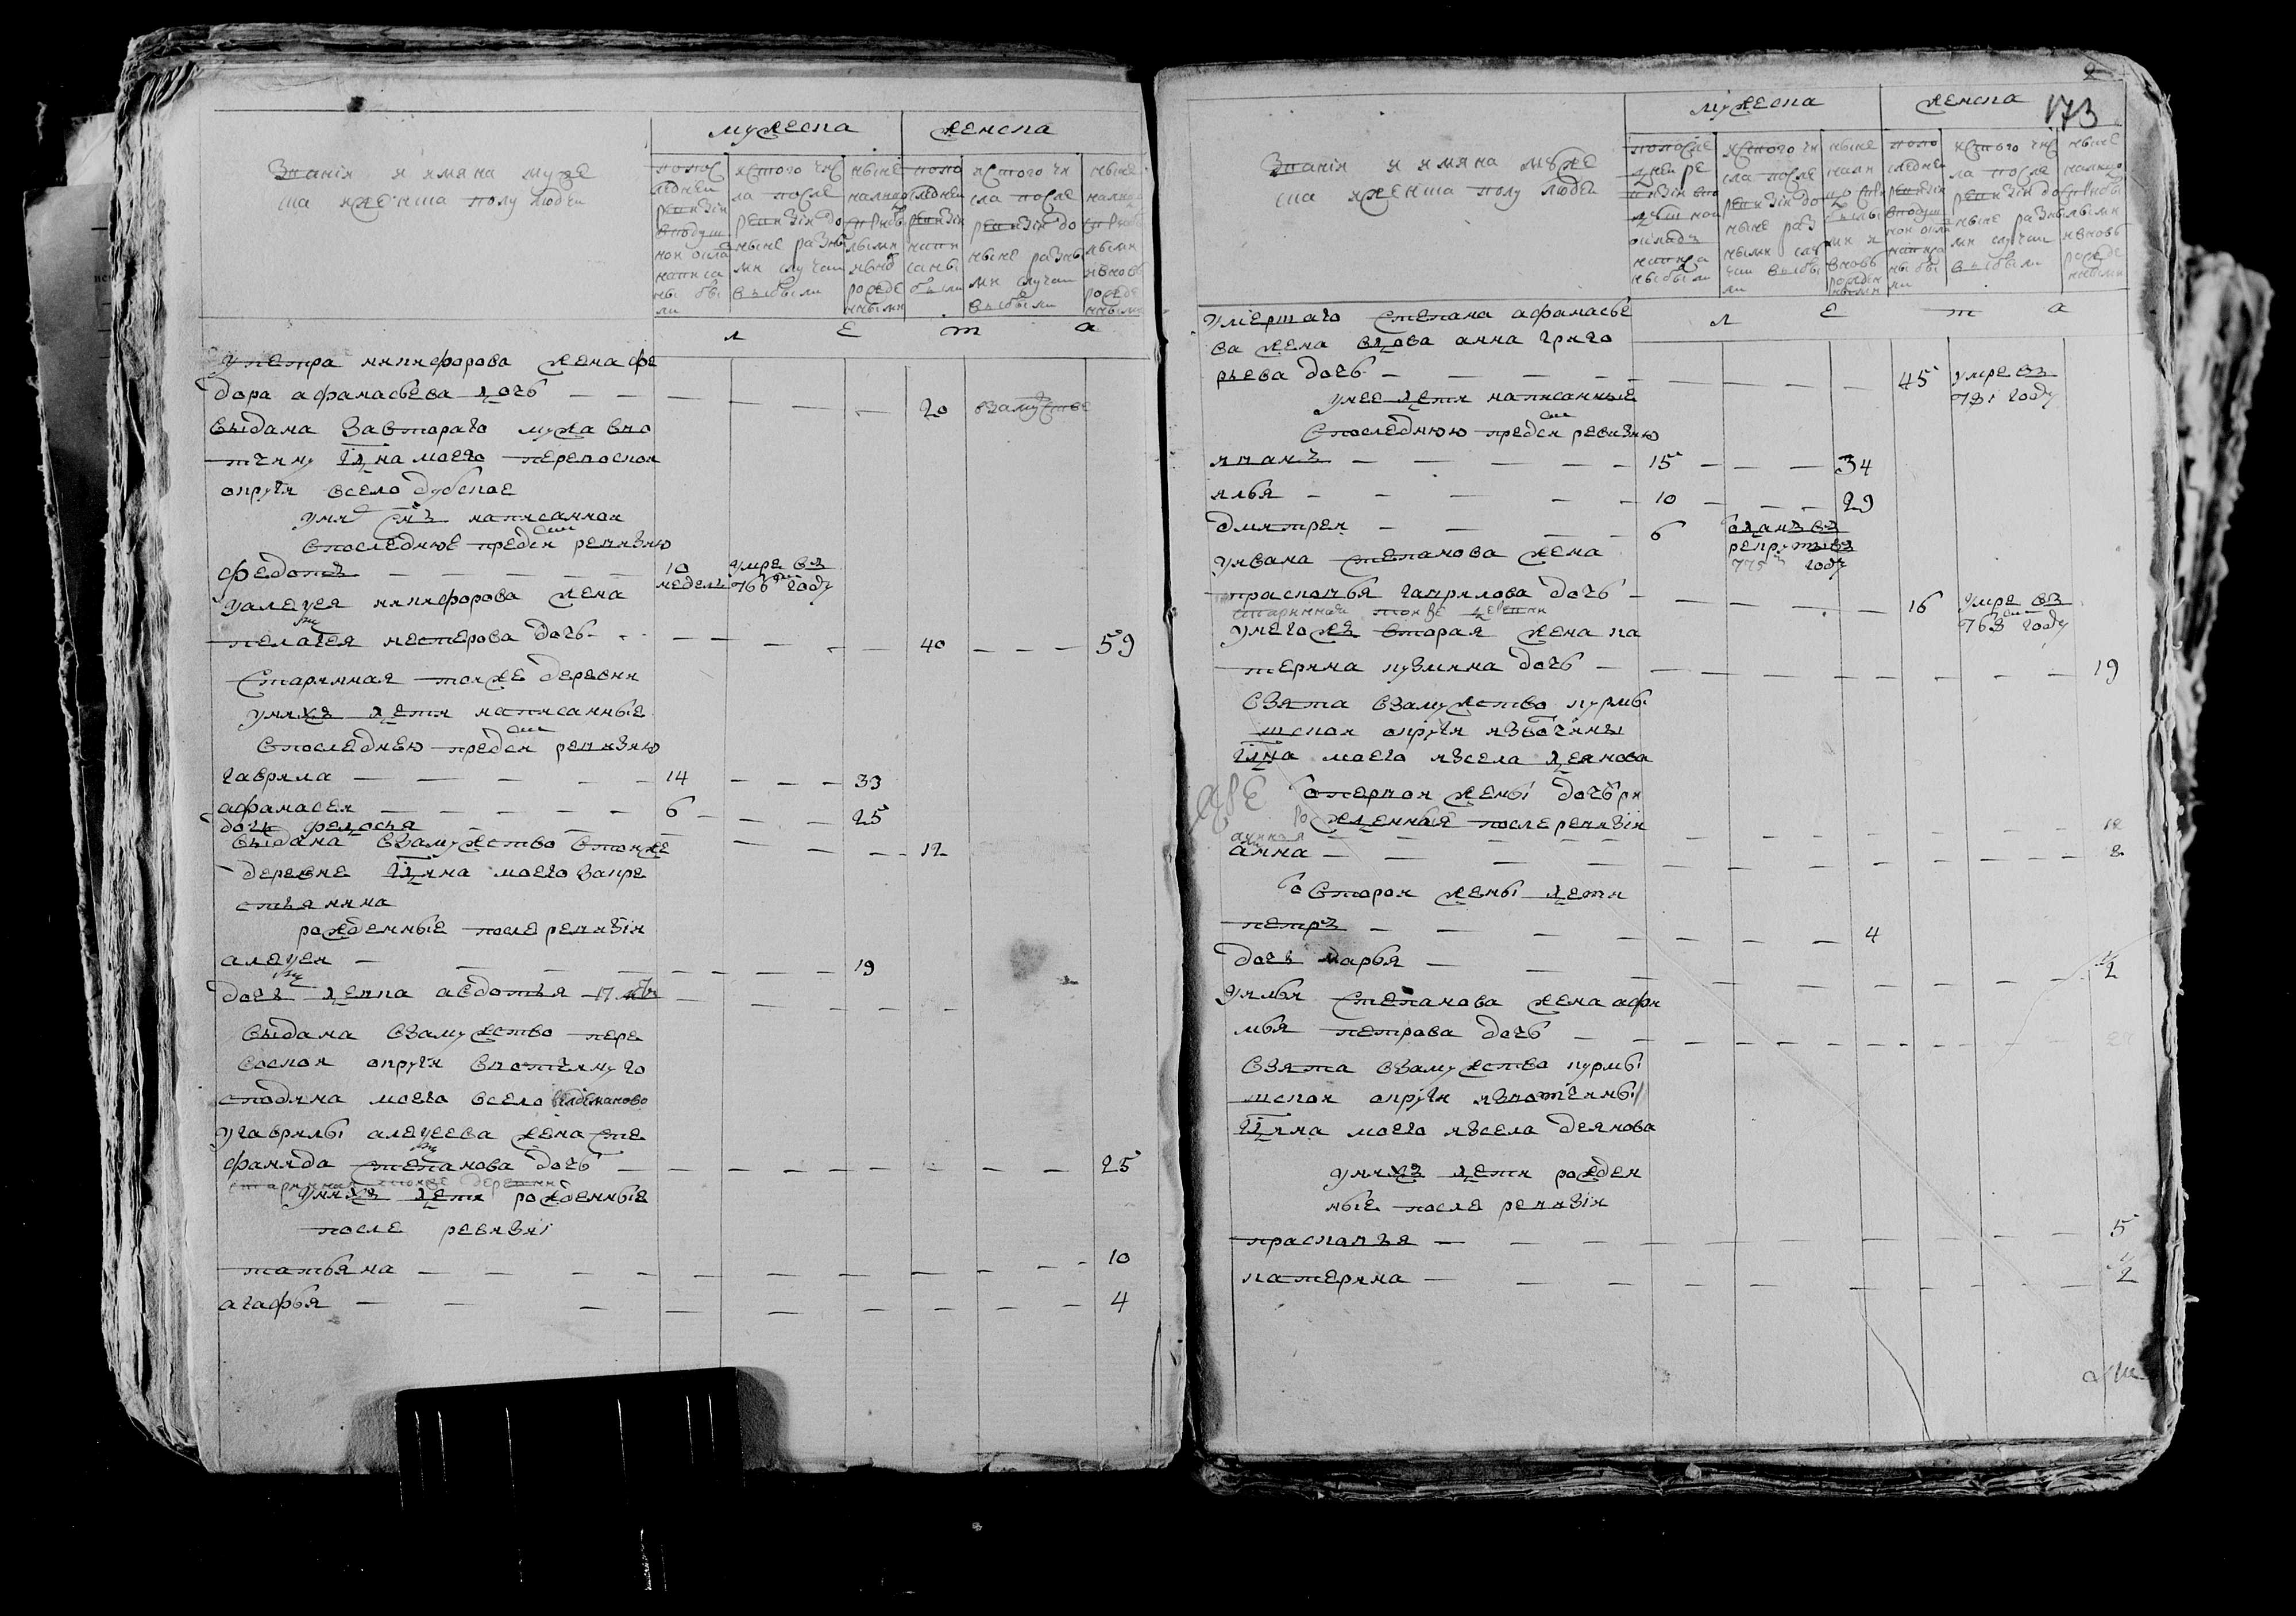 мужеска женска
Званія и имяна муже
ска и женска полу людеи
попос леднеи ревизіи вподуш нои окла написа ны бы ли
истого чис ла после ревизіи до ныне разны ми случаи выбыли
ныне налицо старыи сновь рожде нными
попо следнеи ревизіи напи саны были
истого чи сла после ревизіи до ныне разны ми случаи выбыли
ныне налицо ивновь рожде нными
л е т а
у петра никифорова жена фе
дора афанасьева дочь — — — 20 взамужстве
выдана завтораго мужа вво
тчину гдна моего перевоскои
округи всело дубское
унихъ снъ написаннои
впоследнюе предъ сим ревизию
федотъ — — — 10 неделъ умре въ 766м году
уалеѯея никифорова жена
пелагея нестерова дочь — — 40 — — 59
старинная тоиже деревни
унихъ дети написанные
впоследнею предъ сим ревизию
гаврила — — — 14 — — 33
афанасеи — — — 6 — — 25
дочь федосья — — — 12
выдана взамужство втоиже
деревне гдина моего закре
стьянина
рожденные после ревизіи
алеѯеи — — — 19
дочь девка авдотья 17 лет — — —
выдана взамужство пере
воскои округи ввотчину го
сподина моего всело
угаврилы алеѯеева жена сте
фанида степанова дочь — — — 25
старинная тоиже деревни
унихъ дети рожденные
после ревизиі
татьяна — — — 10
агафья — — — 4
2
173
мужеска женска
Званія и имяна муже
ска иженска полу людеи
попосле днеи ре визіи впо душ нои окладъ написа ны были
истого чи сла после ревизіи до ныне раз ными слу чаи выбы ли
ныне нали цо ста рыми и вновь рожден ными
попо следнеи ревизіи вподуш нои окла написа ны бы ли
истого чис ла после ревизіи до ныне разны ми случаи выбыли
ныне налицо старыми ивновь рожде нными
л е т а
умершаго степана афанасье
ва жена вдова анна григо
рьева дочь — — — 45 умре въ 781 году
унее дети написанные
впоследнюю предъ сим ревизию
иванъ — — — 15 — — 34
илья — — — 10 — — 29
дмитреи — — — 6 отданъ въ рекруты въ 775м году
уивана степанова жена
прасковья гаврилова дочь — — — 16 умре въ 768м году
старинная тоиже деревни
унегожъ вторая жена ка
терина кузмина дочь — — — 19
взята взамужство курмы
шскои округи извотчины
гдна моего изсела деянова
отпервои жены дочери
рожденныя послеревизіи
— — — 12
анна — — — 8
отвторои жены дети
петръ — — — 4
дочь марья — — — 1/2
уильи степанова жена афи
мья петрова дочь — — —
взята взамужства курмы
шскои округи извотчины
гдина моего изсела деянова
унихъ дети рожден
ные после ревизіи
прасковья — — — 5
катерина — — — 1/2